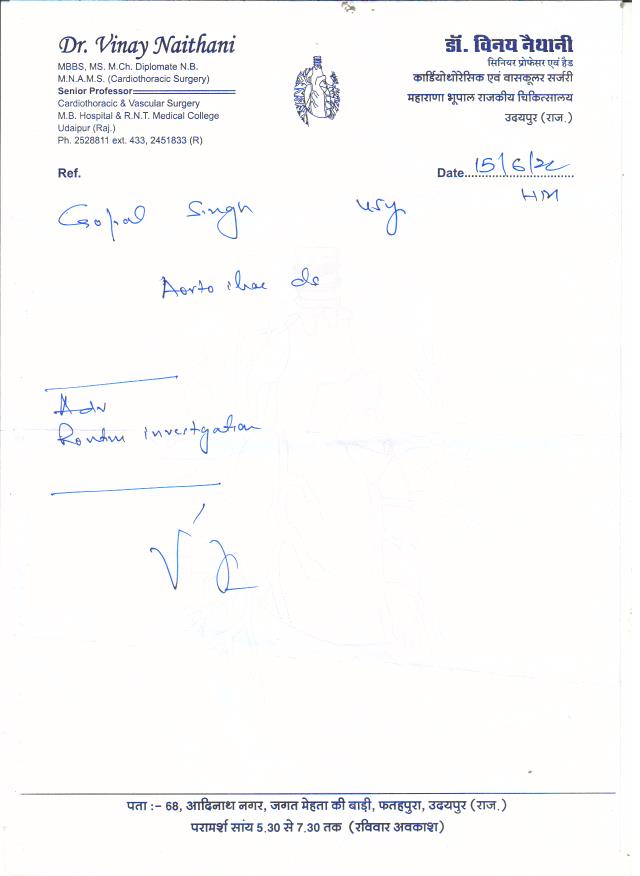 Dr. Vinay Naithani
MBBS, MS. M.Ch. Diplomate N.B.
M.N.A.M.S. (Cardiothoracic Surgery)
Senior Professor
Cardiothoracic & Vascular Surgery
M.B. Hospital & R.N.T. Medical College
Udaipur (Raj.)
Ph. 2528811 ext. 433, 2451833 (R)
डॉ. विनय नैथानी
सिनियर प्रोफेसर एवं हैड
कार्डियोथोरेसिक एवं वासकूलर सर्जरी
महाराणा भूपाल राजकीय चिकित्सालय
उदयपुर (राज.)
Ref.
Date 15/6/22
Gopal Singh
Aorto iliac ds
Adv
Routin investgation
पता :– 68, आदिनाथ नगर, जगत मेहता की बाड़ी, फतहपुरा, उदयपुर (राज.)
परामर्श सांय 5.30 से 7.30 तक (रविवार अवकाश)